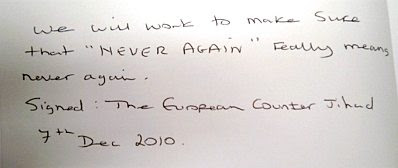 We will work to make sure
that "NEVER AGAIN" really means
never again.
Signed: The European Counter Jihad
7th Dec 2010.